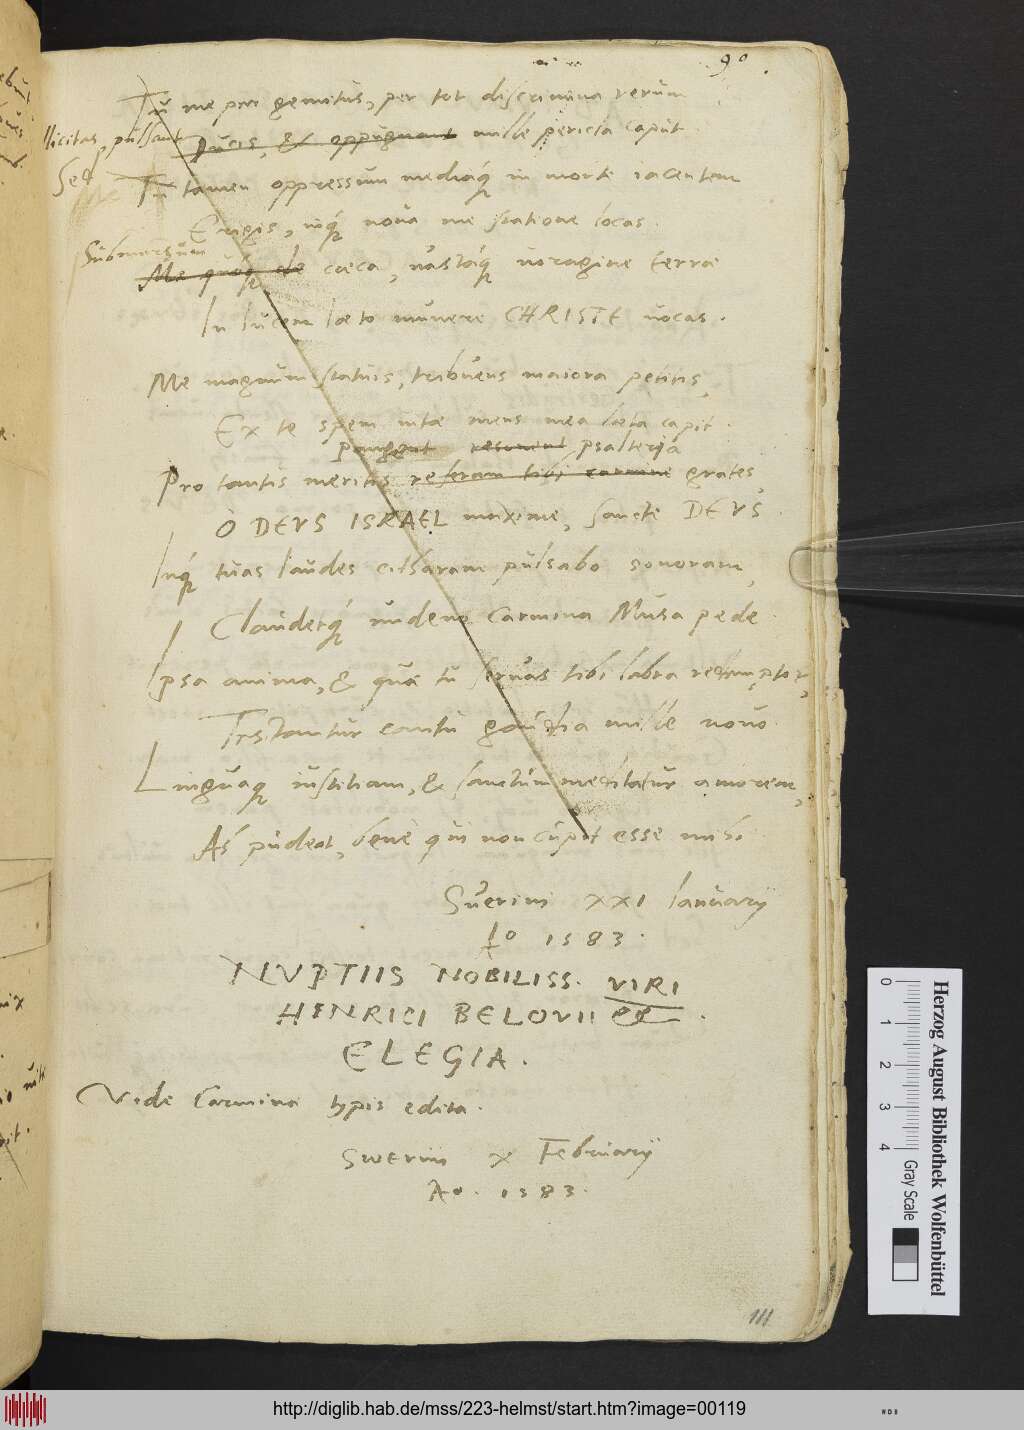 90.
Tu me per gemitus, per tot discrimina rerum
llicitas, pulsant
Ducis, & oppugnant mille pericla caput.
Sed
Tu tamen oppressum mediaq́ue in morte iacentem
Erigis, inq́ue noua me statione locas.
Submersum
Me quoq́ue de cæca, uastáq́ue uoragine terræ
In lucem læto munere CHRISTE uocas.
Me magnum statuis, tribuens maiora petitis,
Ex te spem uitæ mens mea læta capit.
Pangent resonent psalteria
Pro tantis meritis referam tibi carmine grates,
Ô DEVS ISRAEL maxime, sancte DEVS.
Inq́ue tuas laudes citharam pulsabo sonoram,
Claudetq́ue undeno carmina Musa pede.
Ipsa anima, & quæ tu seruas tibi labra redemptor,
Testantur cantu gaudia mille nouo.
Linguaque iustitiam, & sanctum meditatur amorem,
Ah pudeat, bene qui non cupit esse mihi.
Suerini XXI Ianuarij
Ao 1583.
NVPTIIS NOBILISS. VIRI
HENRICI BELOVII &c.
ELEGIA.
Vide Carmina typis edita.
Swerini X Februarij
Ao. 1583.
111
Herzog August Bibliothek Wolfenbüttel
0 1 2 3 4
Gray Scale
http://diglib.hab.de/mss/223-helmst/start.htm?image=00119